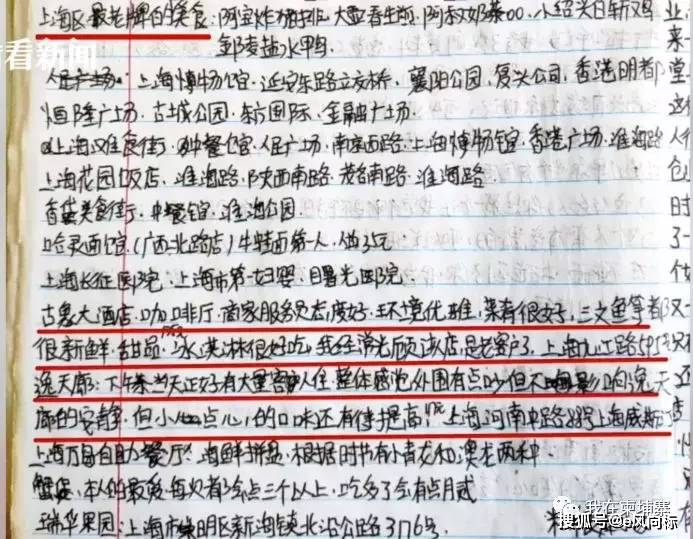 看看新闻
上海区最老牌的美食:阿宝炸猪排、大壶春生煎、阿  奶茶00、小绍兴白斩鸡
邵老盐水鸭
人民广场。上海博物馆、延安东路立交桥、襄阳公园、复兴公司、香港明都
恒隆广场、古城公园、东方国际、金融广场。
上海汉食街、中餐馆、人民广场、南京西路、上海博物馆、香港广场、淮海路
上海花园饭店、淮海路、陕西南路、茂名南路、淮海路。
美食街、中餐馆、淮海公园。
哈灵面馆、(广西北路店)牛特面第一人、做25元
上海长征医院、上海市第一妇婴、曙光医院。
古象大酒店、咖啡厅、商家服务员态度好、环境优雅、菜肴很好、三文鱼等都
很新鲜、甜品、冰淇淋很好吃、我经常光顾该店、是老客户了、上海九江路595号
逸天廊:下午茶当天正好有大量客人住、整体感觉外围有点吵但不影响逸天
廊的安静、但小点心的口味还有待提高、上海河南中路 号上海威斯
上海万 自助餐厅:海鲜拼盘、根据时节有小青龙和澳龙两种
蟹 、本人的最爱每次都会点三个以上、吃多了会有点负感
瑞华果园:上海市崇明区新海镇北沿公路3176号。
我在柬埔寨
搜狐号@风向标